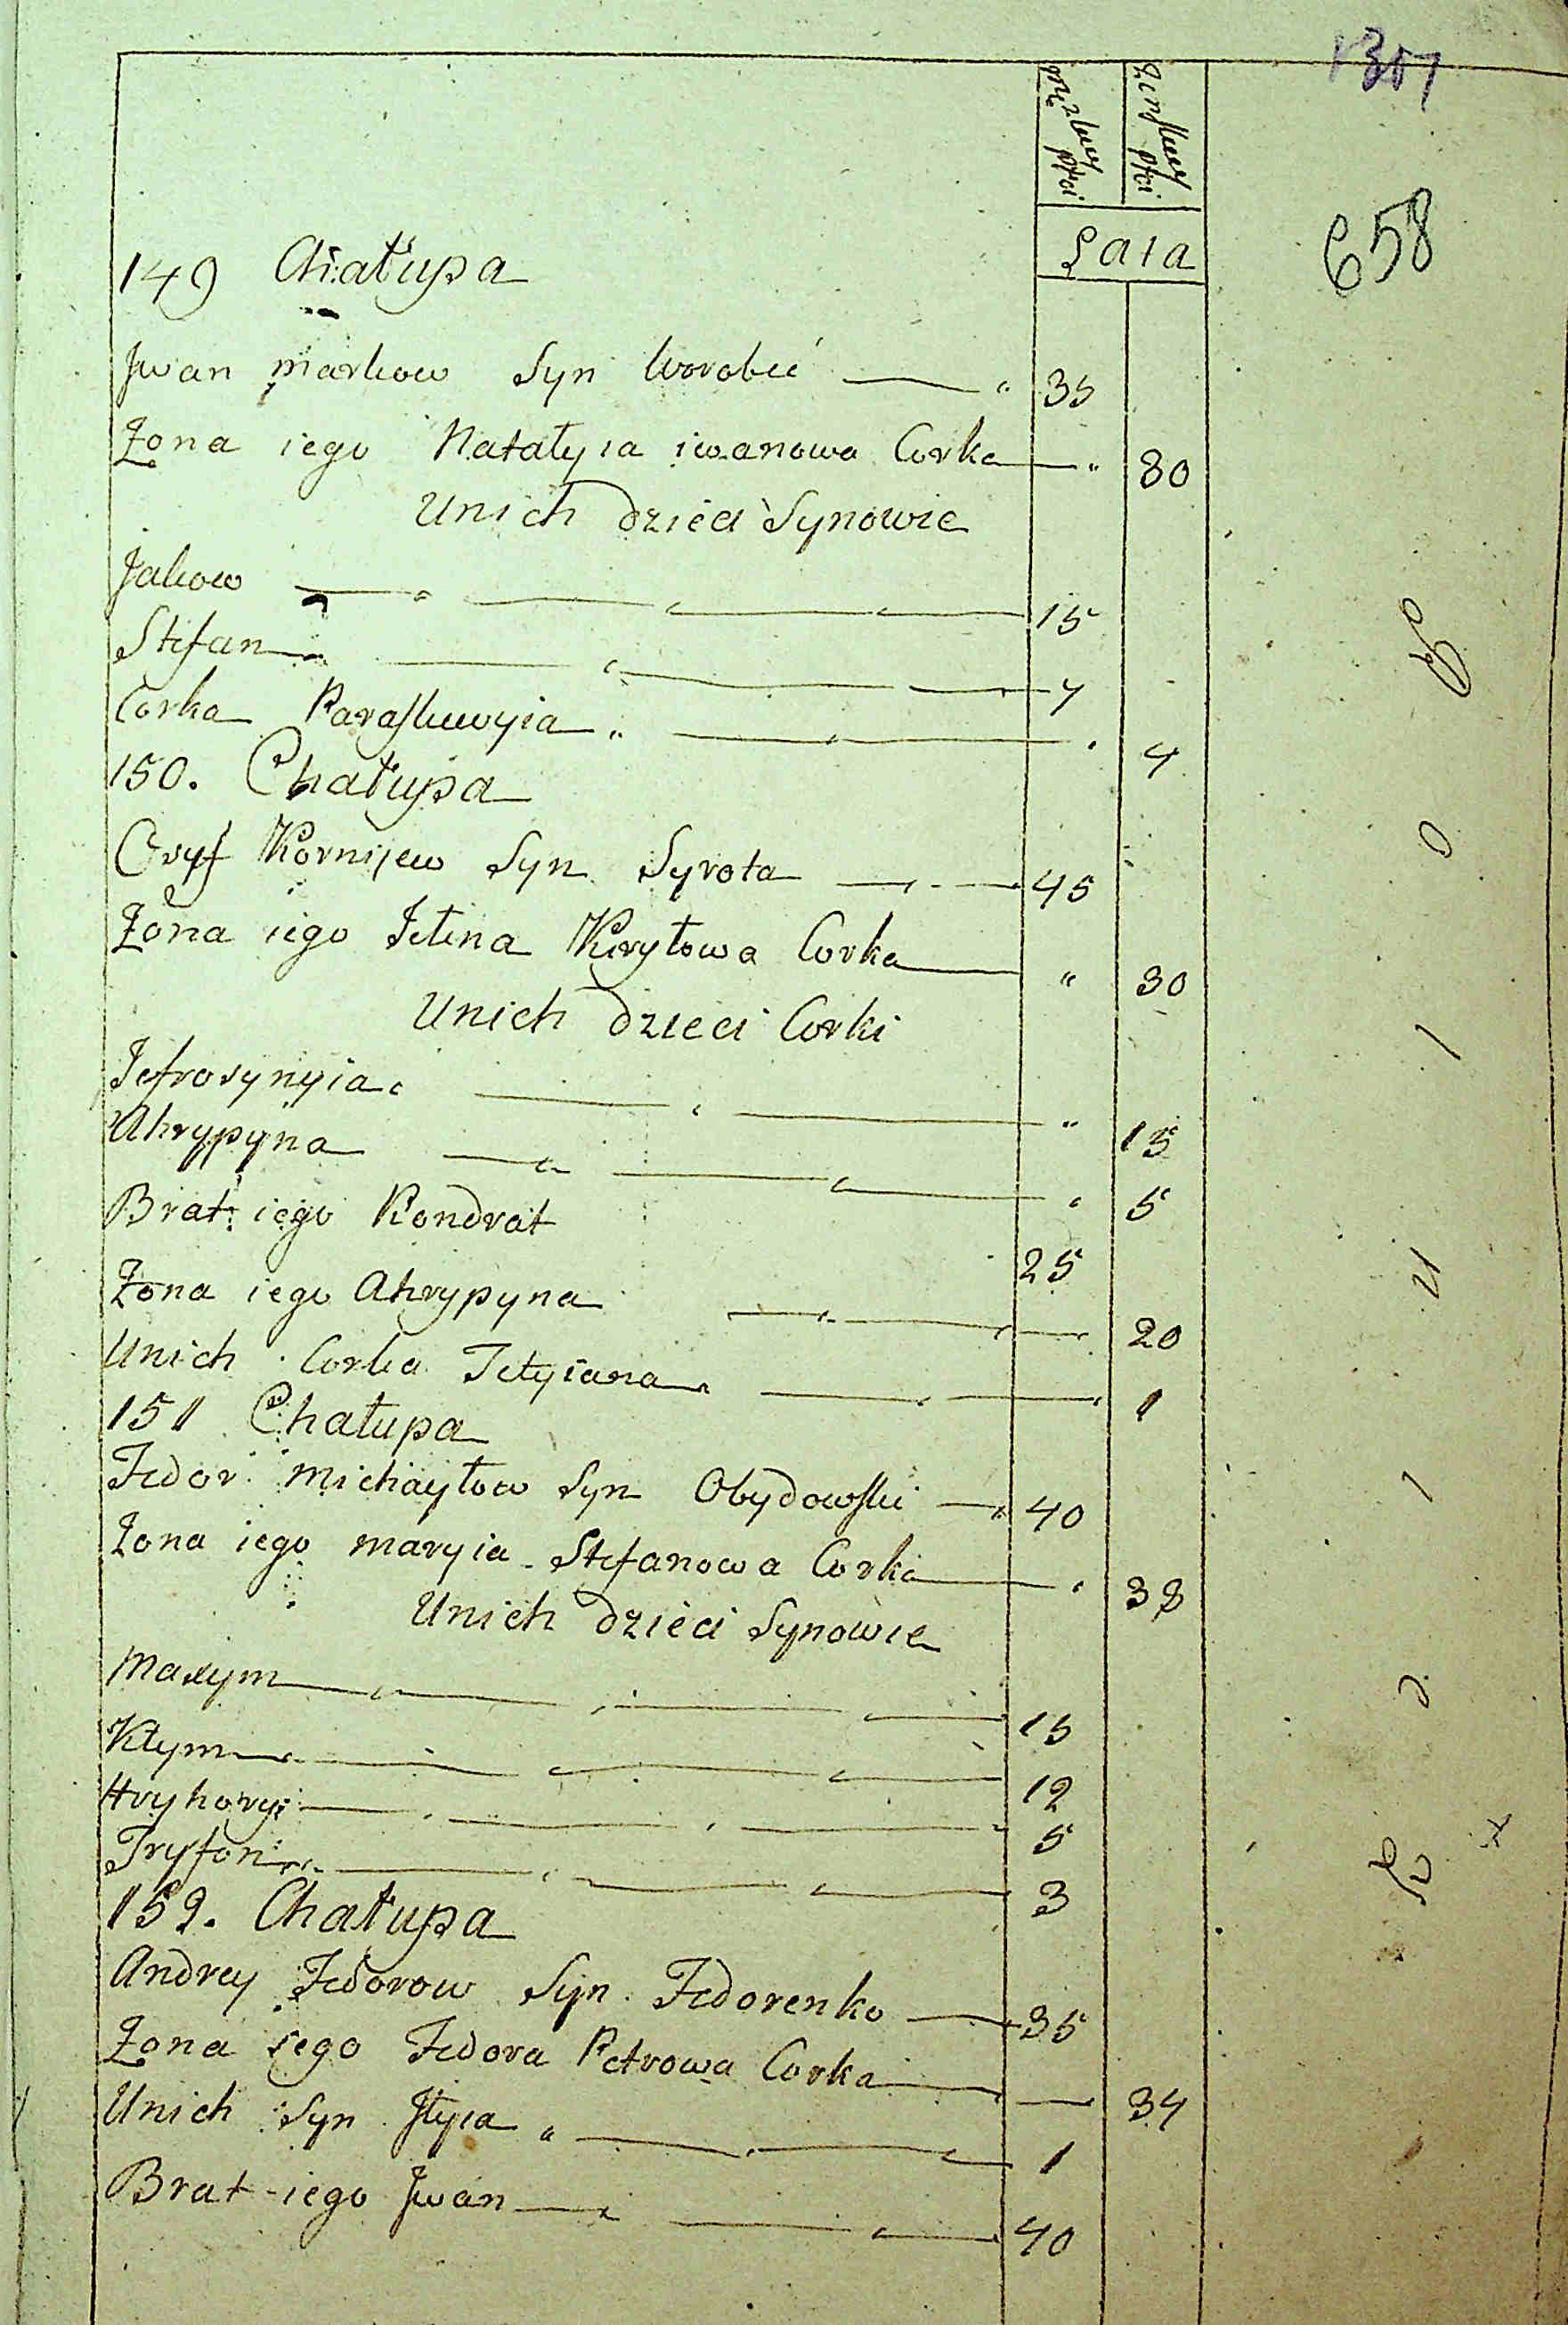 1307
męzkiey płci
Zenskiey płci
658
Lata
149 Chałupa
Jwan Markow Syn Worobei 35
Zona iego Natałyia iwanowa Corka 30
Unich dzieci Synowie
Jakow 15
Stefan 7
Corka Paraskiewyia 4
150. Chałupa
Osyf Kornijew Syn Syrota 45
Zona iego Jełena Kiryłowa Corka 30
Unich dzieci Corki
Jefrosynyia 15
Ahrypyna 5
Brat iego Kondrat 25
Zona iego Ahrypyna 20
Unich Corka Tetyiana 1
151 Chałupa
Fedor Michayłow Syn Obydowski 40
Zona iego maryia Stefanowa Corka 38
Unich dzieci Synowie
Maxym 15
Kłym 12
Hryhoryi 5
Tryfon 3
152. Chałupa
Andrey Fedorow Syn Fedorenko 35
Zona iego Fedora Petrowa Corka 34
Unich Syn Jłyia 1
Brat iego Jwan 40